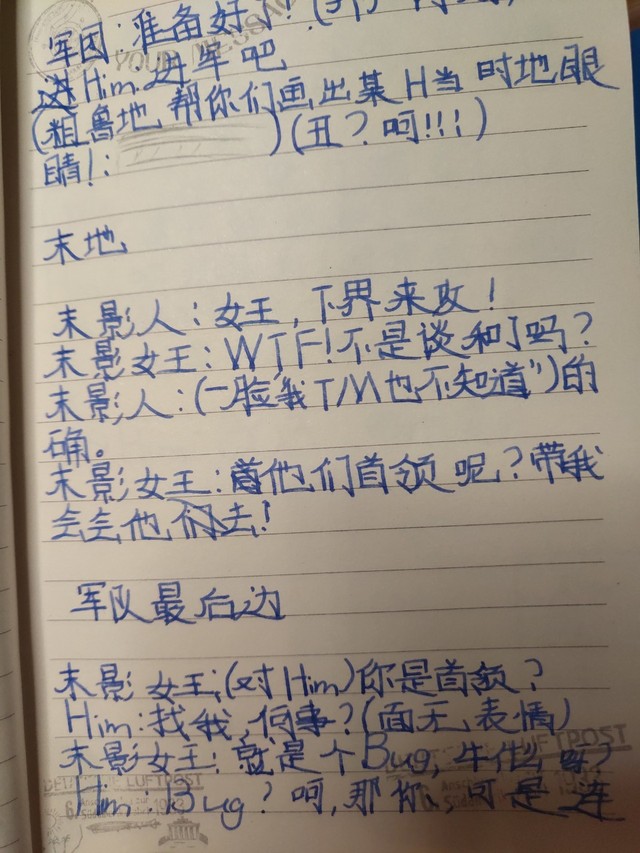 军团:准备好了!
进Him:进军吧
(粗鲁地,帮你们画出某H当时地眼
睛!:          )(丑?呵!!!)
末地
末影人:女王,下界来攻!
末影女王:WTF!不是谈和了吗?
末影人:(一脸“我TM也不知道”)的
确。
末影女王:他们首领呢?带我
会会他们去!
军队最后边
末影女王:(对Him)你是首领?
Him:找我,何事?(面无表情)
末影女王:就是个Bug,牛什么呀?
Him:Bug?呵,那你,可是连
LUFTPOST
LUFTPOST